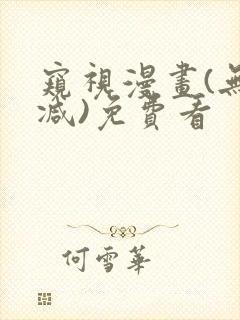 窺視漫畫(無
減)免費看
何雪華